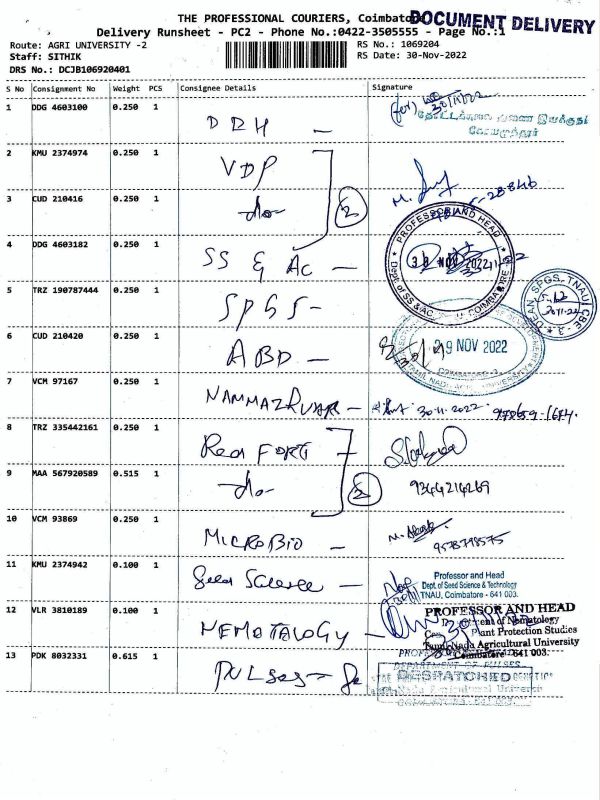 THE PROFESSIONAL COURIERS, Coimbatore
DOCUMENT DELIVERY
Delivery Runsheet - PC2 - Phone No.:0422-3505555 - Page No.:1
Route: AGRI UNIVERSITY -2
RS No.: 1069204
Staff: SITHIK
RS Date: 30-Nov-2022
DRS No.: DCJB106920401
S No Consignment No Weight PCS Consignee Details Signature
1 DDG 4603100 0.250 1 DDH - (for) 30/11/22
தோட்டக்கலை
கோயமுத்தூர்
2 KMU 2374974 0.250 1 VDP
3 CUD 210416 0.250 1 -do- 2
PROFESSOR AND HEAD
4 DDG 4603182 0.250 1 SS & AC -
30 NOV 2022
Dept. of SS & AC
COIMBATORE
5 TRZ 190787444 0.250 1 SPGS -
DEAN, SPGS, TNAU, CBE - 3
30.11.22
6 CUD 210420 0.250 1 ABD -
29 NOV 2022
COIMBATORE-3
TAMIL NADU AGRL. UNIVERSITY
7 VCM 97167 0.250 1 NAMMAZHVAR - 30.11.2022
8 TRZ 335442161 0.250 1 Red FORT
9 MAA 567920589 0.515 1 -do- 2 9344214269
10 VCM 93869 0.250 1 MICROBIO - 9578798575
11 KMU 2374942 0.100 1 Seed Science -
Professor and Head
Dept. of Seed Science & Technology
TNAU, Coimbatore - 641 003.
12 VLR 3810189 0.100 1 NEMOTALOGY -
PROFESSOR AND HEAD
Department of Nematology
Plant Protection Studies
Tamil Nadu Agricultural University
Coimbatore - 641 003.
13 PDK 8032331 0.615 1 PULses -
DEPARTMENT OF PULSES
DESPATCHED
Tamil Nadu Agricultural University